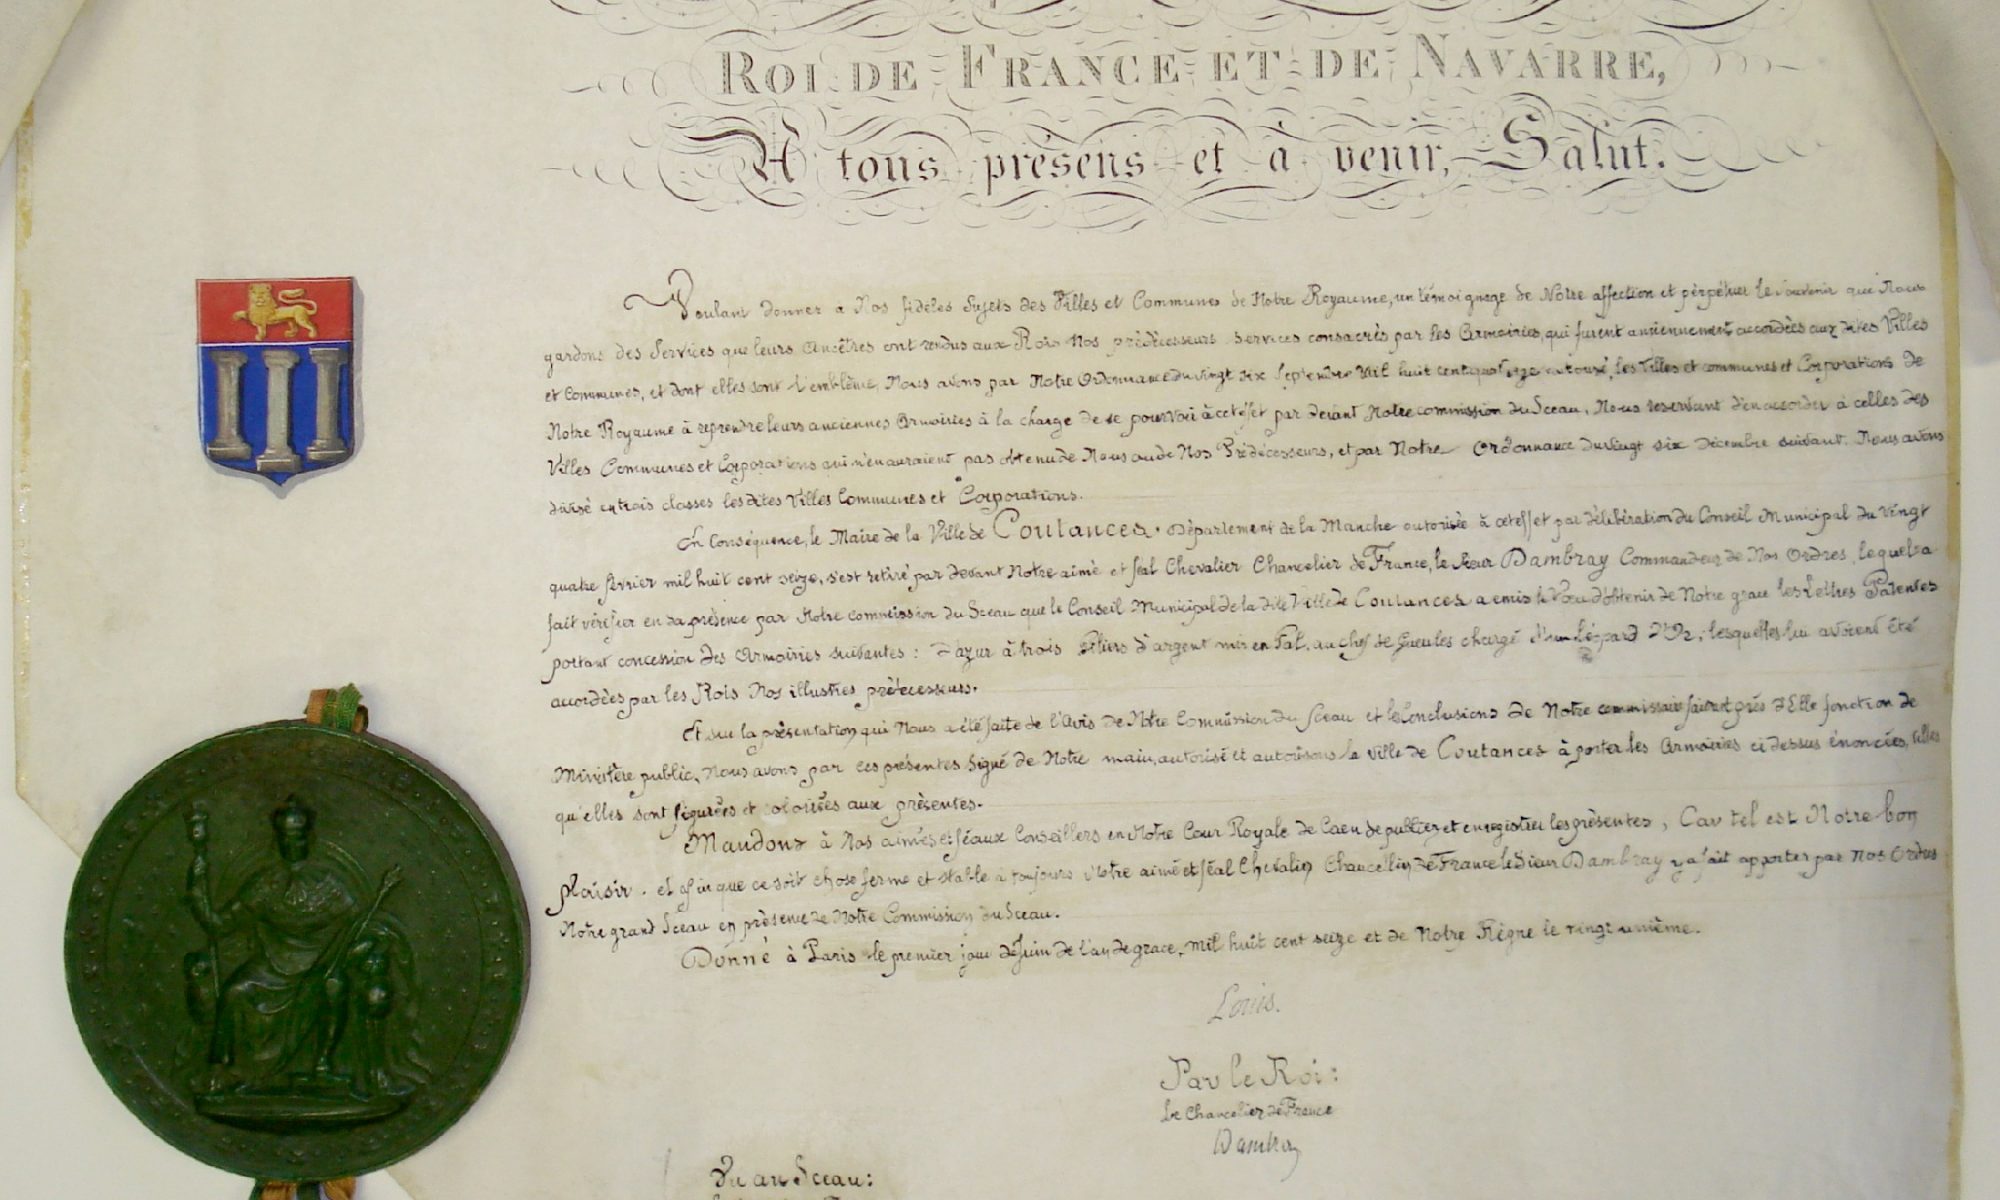 ROI DE FRANCE ET DE NAVARRE,
A tous présens et à venir, Salut.
Voulant donner a Nos fidèles Sujets des Villes et Communes de Notre Royaume, un témoignage de Notre affection et perpétuer le souvenir que Nous
gardons des Services que leurs Ancêtres ont rendus aux Rois Nos prédécesseurs, Services consacrés par les Armoiries, qui furent anciennement accordées aux dites Villes
et Communes, et dont elles sont l'emblème, Nous avons par Notre Ordonnance du vingt six Septembre Mil huit cent quatorze autorisé, les Villes et communes et Corporations de
Notre Royaume à reprendre leurs anciennes Armoiries à la charge de se pourvoir à cet effet par devant Notre commission du Sceau, Nous reservant d'en accorder à celles des
Villes Communes et Corporations qui n'en auraient pas obtenu de Nous ou de Nos Prédécesseurs, et par Notre Ordonnance du vingt six Décembre suivant. Nous avons
divisé en trois classes les dites Villes Communes et Corporations.
En Conséquence, le Maire de la Ville de Coutances. Département de la Manche autorisé à cet effet par délibération du Conseil Municipal du vingt
quatre février mil huit cent seize, s'est retiré par devant Notre aimé et féal Chevalier Chancelier de France, le Sieur Dambray Commandeur de Nos Ordres, lequel a
fait vérifier en sa présence par Notre commission du Sceau que le Conseil Municipal de la dite Ville de Coutances a emis le Vœu d'obtenir de Notre grace les Lettres Patentes
portant concession des Armoiries suivantes : d'azur à trois Piliers d'argent mis en Pal, au chef de Gueules chargé d'un Léopard d'Or; lesquelles lui avoient été
accordées par les Rois Nos illustres prédecesseurs.
Et sur la présentation qui Nous a été faite de l'Avis de Notre Commission du Sceau et les Conclusions de Notre commissaire faisant près d'Elle fonction de
Ministère public, Nous avons par ces présentes Signé de Notre main, autorisé et autorisons la Ville de Coutances à porter les Armoiries ci dessus énoncées, telles
qu'elles sont figurées et coloriées aux présentes.
Mandons à Nos aimés et féaux Conseillers en Notre Cour Royale de Caen de publier et enregistrer les présentes, Car tel est Notre bon
plaisir. et afin que ce soit chose ferme et stable à toujours Notre aimé et féal Chevalier Chancelier de France le Sieur Dambray y a fait apposer par Nos Ordres
Notre grand Sceau en présence de Notre Commission du Sceau.
Donné à Paris le premier jour de Juin de l'an de grace, mil huit cent seize et de Notre Règne le vingt unième.
Louis.
Par le Roi:
Le Chancelier de France
Dambray
Vu au Sceau: